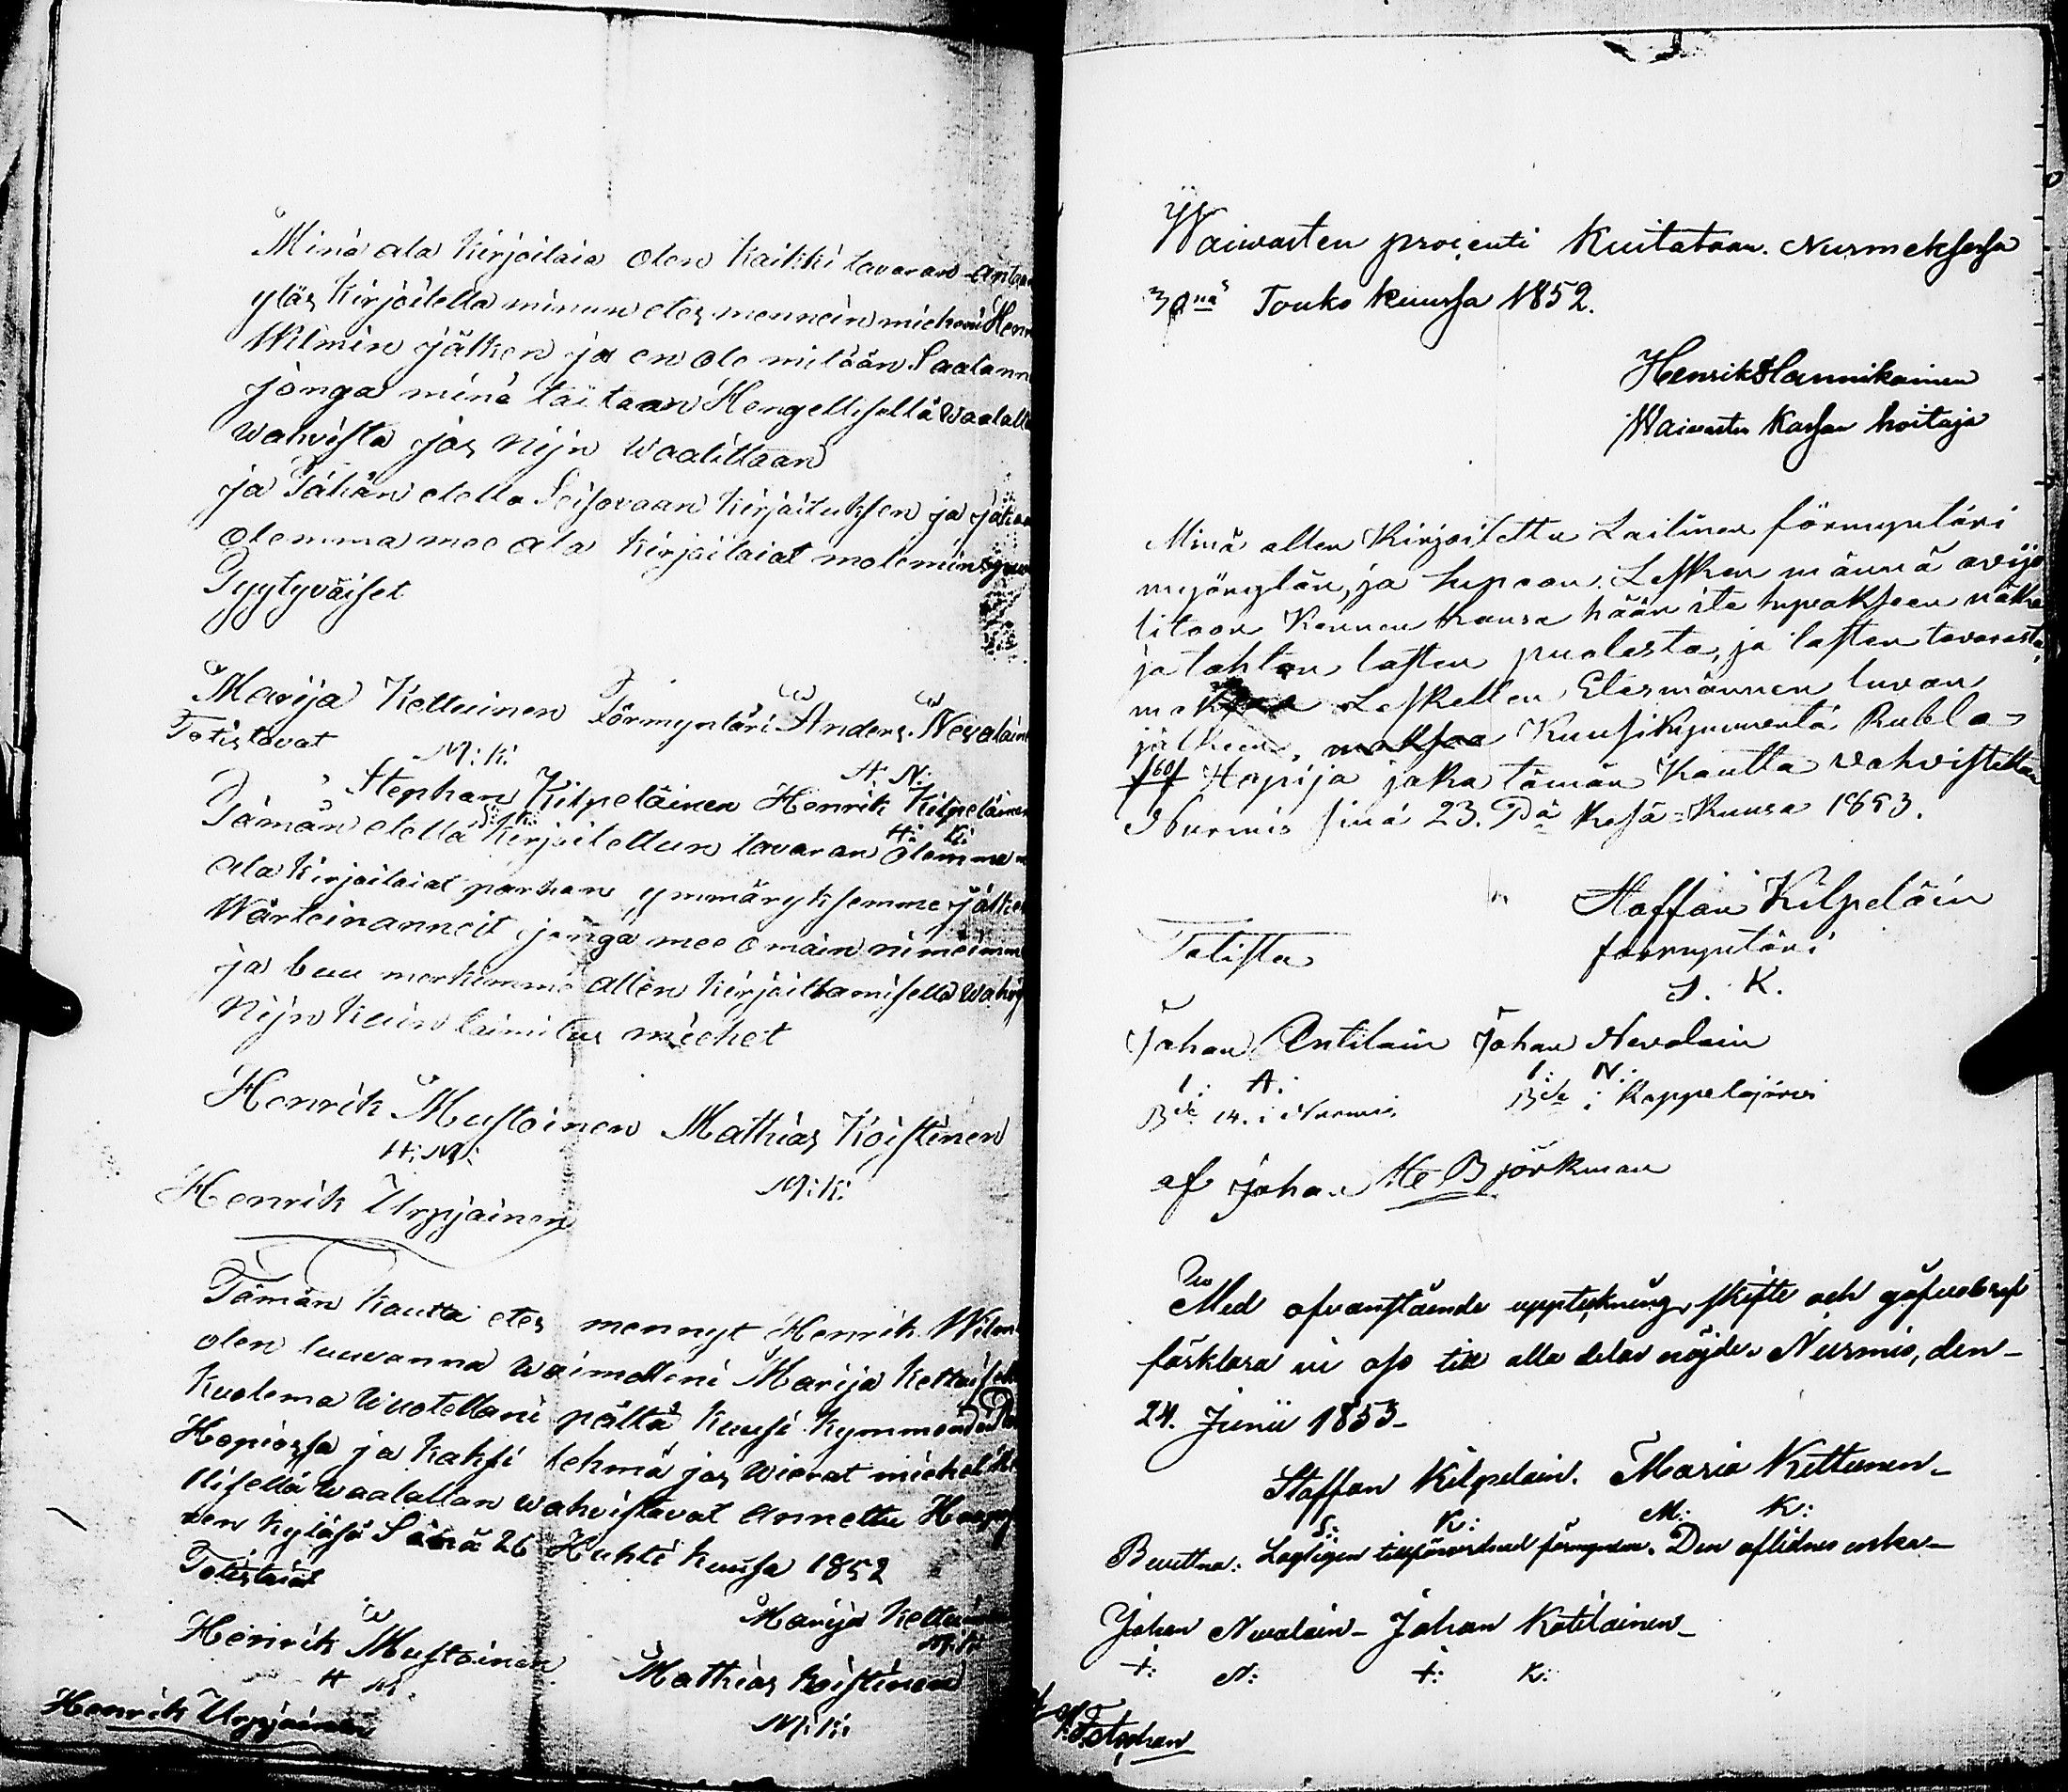 Minä ala kirjoilaia olen kaikki tavaran antan
ylös kirjoitella minun etes mennein mieheni Hen
Wilmin jälken ja en ole mitään Saalann
jonga minä taitaan Hengellisellä waalalla
wahvista jos nijn waalittaan
ja Tähän etella Seisovaan kirjoituksen ja jakoon
olemma mee ala kirjoilaiat molemin
Tyytyväiset
Marija Kettuinen Förmyntäri Anders Nevalain
Totistavat M: K:
A: N:
Stephan Kilpeläinen Henrik Kilpeläinen
S: K: H: K:
Tämän etellä kirjoitellun tavaran olemme
ala kirjoilaiat parhan ymmäryksemme jälken
Wärteinanneit jonga mee omain nimeimme
ja buu merkimme allen kirjoittamisella wahvis
Nijn kuin laimitus miehet
Henrik Mustoinen Mathias Koistinen
H: M: M: K:
Henrik Urpjainen
Tämän kautta etes mennyt Henrik Wilm
olen luuvanna waimolleni Marija kettuisel
kuolema Wuotellani pältä kuusi kymmendä
Hopiossa ja kaksi lehmä jos wierat miehet
llisellä waalallan wahvistavat annettu
nen kylässä Sinä 26 Huhti kuussa 1852
Totistavat
Marija Kettuinen
M: K:
Henrik Mustoinen Mathias Koistinen
H M M: K:
Henrik Urpjainen
Waivasten procenti kuitataan. Nurmeksessa
30nä Touko kuussa 1852.
Henrik Hannikainen
Waivasten kassan hoitaja
Minä allen Kirjoitettu Lailinen förmyntäri
myönytän, ja lupaan, Lesken männä avijo
litoon kennen kansa hään ite lupaksen näke
ja tahton lasten puolesta, ja lasten tavarasta,
maksaa Leskellen Etesmännen luvan
jälkeen, maksaa Kuusikymmentä Rubla=
60 Hopija joka tämän kautta vahvistettan
Nurmis sinä 23. Pä Kesä=Kuusa 1853.
Staffan Kilpeläin
Totista förmyntäri
S. K.
Johan Antilain Johan Nevalain
I: A: I: N:
Bde 14. i Nurmis Bde i Kappelajärvi
af Johan He Björkman
Med ofvanstående uppteckning, skifte och gåfvobref
förklara vi oss till alla delar nöjde. Nurmis, den
24. Junii 1853-
Staffan Kilpelain. Maria Kettunen-
S: K: M: K:
Bevittna: Lagligen tillförordnad förmyndare. Den aflidnes enka-
Johan Nevalain- Johan Kotilainen-
I: N: I: K: